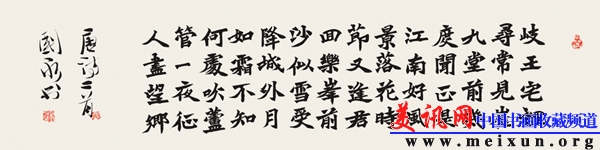 岐王宅裡
尋常見崔
九堂前幾
度聞正是
江南好風
景落花時
節又逢君
回樂峯前
沙似雪受
降城外月
如霜不知
何處吹蘆
管一夜征
人盡望鄉
唐詩二首
美讯网 中国书画收藏频道
www.meixun.org